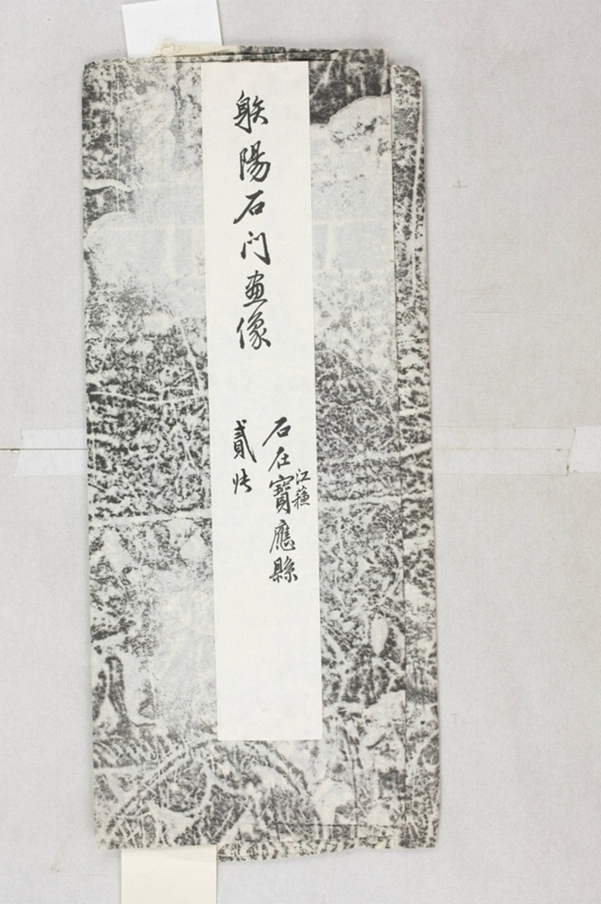 躲陽石门画像
石在寶應縣
江蘓
貳张